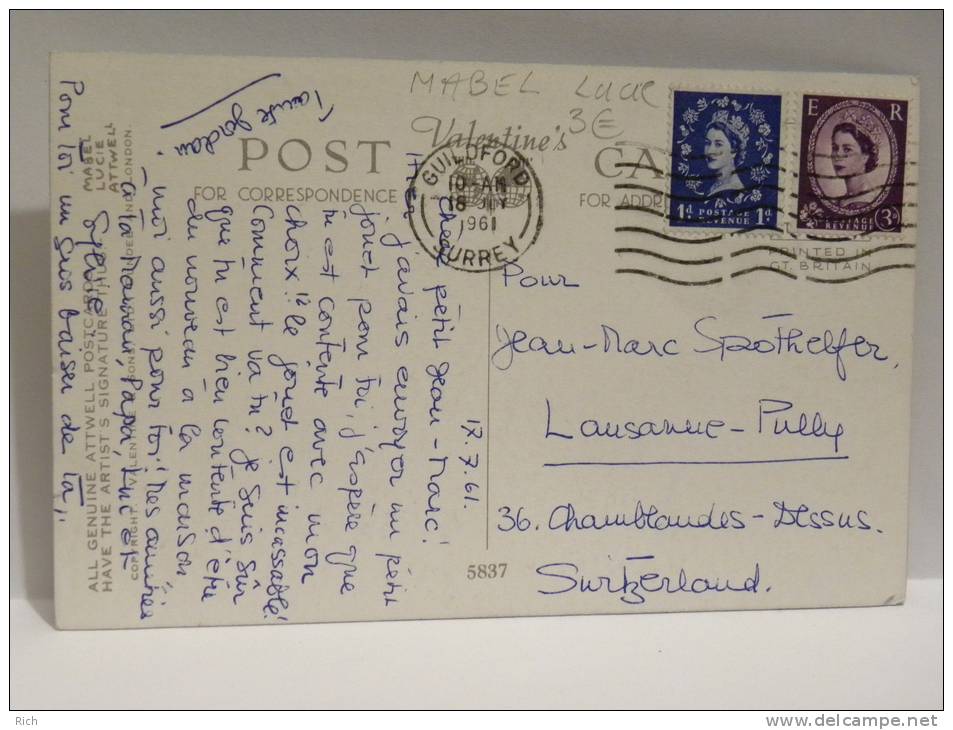 MABEL Lucie
3€
Valentine's
POST CA
FOR CORRESPONDENCE
FOR ADDR
GUILDFORD
10-AM
18 JLY
1961
SURREY
1d POSTAGE REVENUE 1d
E R
POSTAGE REVENUE 3d
PRINTED IN
GT. BRITAIN
17.7.61.
Chère petit Jean-Marc!
Hier j'avais envoyer un petit
jouet pour toi, j'espère que
tu est contente avec mon
choix!? le jouet est incassable!
Comment va tu? je suis sûr
que tu est bien contente d'être
du nouveau a la maison
moi aussi pour toi! Mes amitiés
a ta Maman, Papa, Luc et
Sylvie
Pour toi un gros baiser de ta
Tante
Pour
Jean-Marc Spothelfer,
Lausanne-Pully
36. Chamblandes-Dessus.
Switzerland.
5837
ALL GENUINE ATTWELL POSTCARDS
HAVE THE ARTIST'S SIGNATURE THUS
MABEL
LUCIE
ATTWELL
COPYRIGHT. VALENTINE & SONS LONDON.
Rich
www.delcampe.net